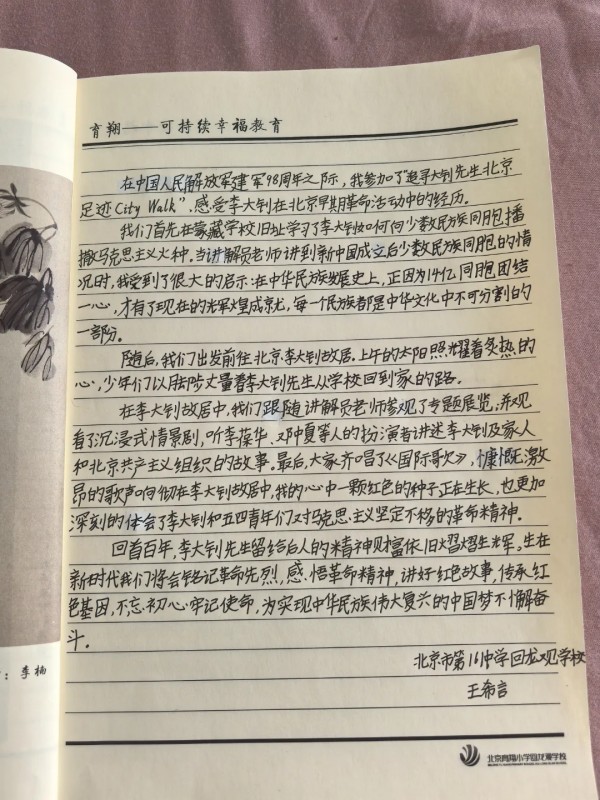 育翔——可持续幸福教育
在中国人民解放军建军98周年之际，我参加了“追寻大钊先生北京
足迹City Walk”，感受李大钊在北京早期革命活动中的经历。
我们首先在蒙藏学校旧址学习了李大钊如何向少数民族同胞播
撒马克思主义火种。当讲解员老师讲到新中国成立后少数民族同胞的情
况时，我受到了很大的启示：在中华民族发展史上，正因为14亿同胞团结
一心，才有了现在的光辉煌成就，每一个民族都是中华文化中不可分割的
一部分。
随后，我们出发前往北京李大钊故居。上午的太阳照耀着炙热的
心，少年们以脚步丈量着李大钊先生从学校回到家的路。
在李大钊故居中，我们跟随讲解员老师参观了专题展览，并观
看了沉浸式情景剧，听李葆华、邓中夏等人的扮演者讲述李大钊及家人
和北京共产主义组织的故事。最后，大家齐唱了《国际歌》，慷慨激
昂的歌声响彻在李大钊故居中，我的心中一颗红色的种子正在生长，也更加
深刻的体会了李大钊和五四青年们对马克思主义坚定不移的革命精神。
回首百年，李大钊先生留给后人的精神财富依旧熠熠生辉。生在
新时代我们将会铭记革命先烈，感悟革命精神，讲好红色故事，传承红
色基因，不忘初心牢记使命，为实现中华民族伟大复兴的中国梦不懈奋
斗。
北京市第161中学回龙观学校
王希言
：李楠
北京育翔小学回龙观学校